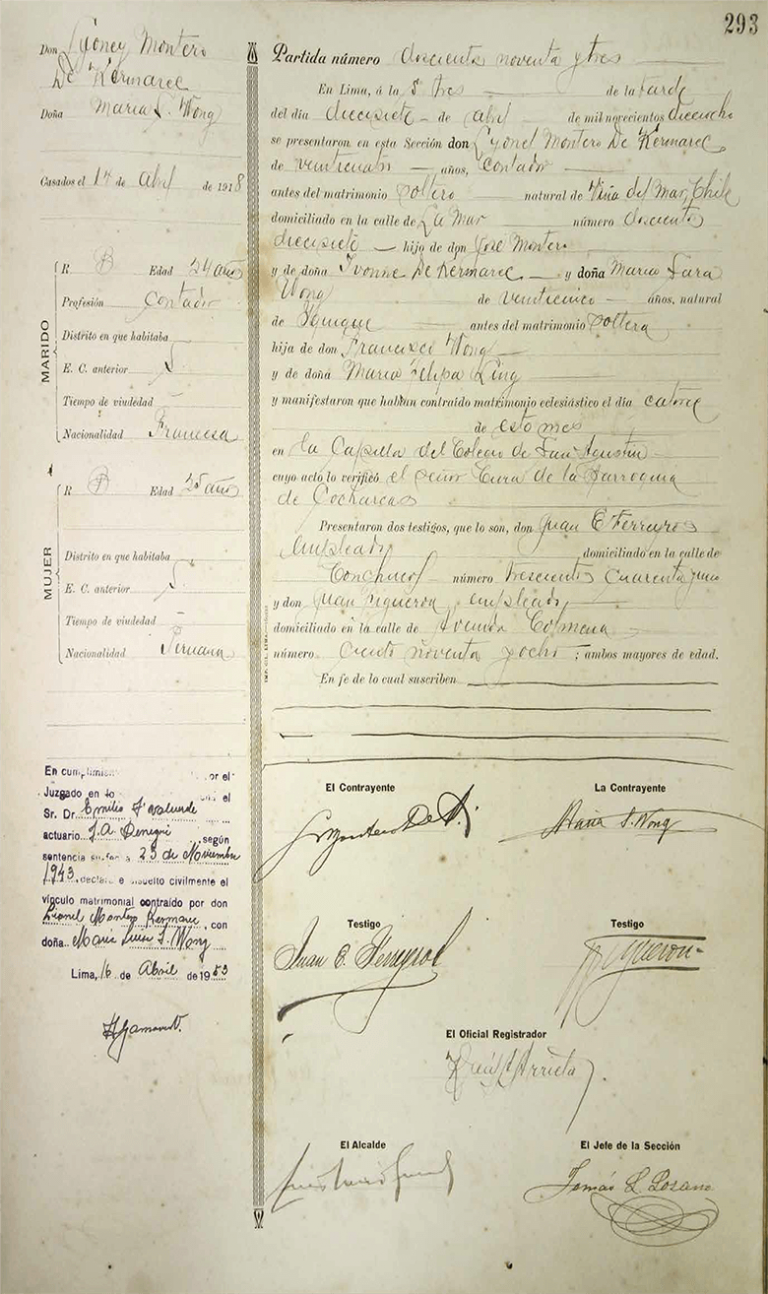 293
Don Lyoney Montero
De Kermarec
Doña Maria L. Wong
Casados el 17 de Abril de 1918
MARIDO
R. B Edad 24 años
Profesión Contador
Distrito en que habitaba
E. C. anterior S.
Tiempo de viudedad
Nacionalidad Francesa
MUJER
R B Edad 25 años
Distrito en que habitaba
E. C. anterior S.
Tiempo de viudedad
Nacionalidad Peruana
En por el
Juzgado en lo el
Sr. Dr. Emilio F. Valverde
actuario J. A. Denegri, según
sentencia 23 de Noviembre
1943, civilmente el
vínculo matrimonial contraído por don
Lionel Montero Kermarec, con
doña Maria Luisa S. Wong
Lima, 16 de Abril de 1953
Partida número doscientos noventa y tres
En Lima, á la s tres de la tarde
del día diecisiete de abril de mil novecientos dieciocho
se presentaron en esta Sección don Lyonel Montero De Kermarec
de veinticuatro años, contador
antes del matrimonio soltero natural de Viña del Mar, Chile
domiciliado en la calle de La Mar número doscientos
diecisiete hijo de don José Montero
y de doña Ivonne De Kermarec y doña Maria Sara
Wong de veinticinco años, natural
de Iquique antes del matrimonio soltera
hija de don Francisco Wong
y de doña Maria Felipa Ling
y manifestaron que habían contraido matrimonio eclesiástico el día catorce
de este mes
en la Capilla del Colegio de San Agustin
cuyo acto lo verificó el señor Cura de la Parroquia
de Cocharcas
Presentaron dos testigos, que lo son, don Juan E Ferreyros
empleado domiciliado en la calle de
Conchucos número trescientos cuarenta y uno
y don Juan Figueron, empleado,
domiciliado en la calle de Avenida Colmena
número ciento noventa y ocho ; ambos mayores de edad.
En fe de lo cual suscriben
El Contrayente La Contrayente
Maria S. Wong
Testigo Testigo
Juan E. Ferreyros Figueron
El Oficial Registrador
El Alcalde El Jefe de la Sección
Tomás L. Lozano